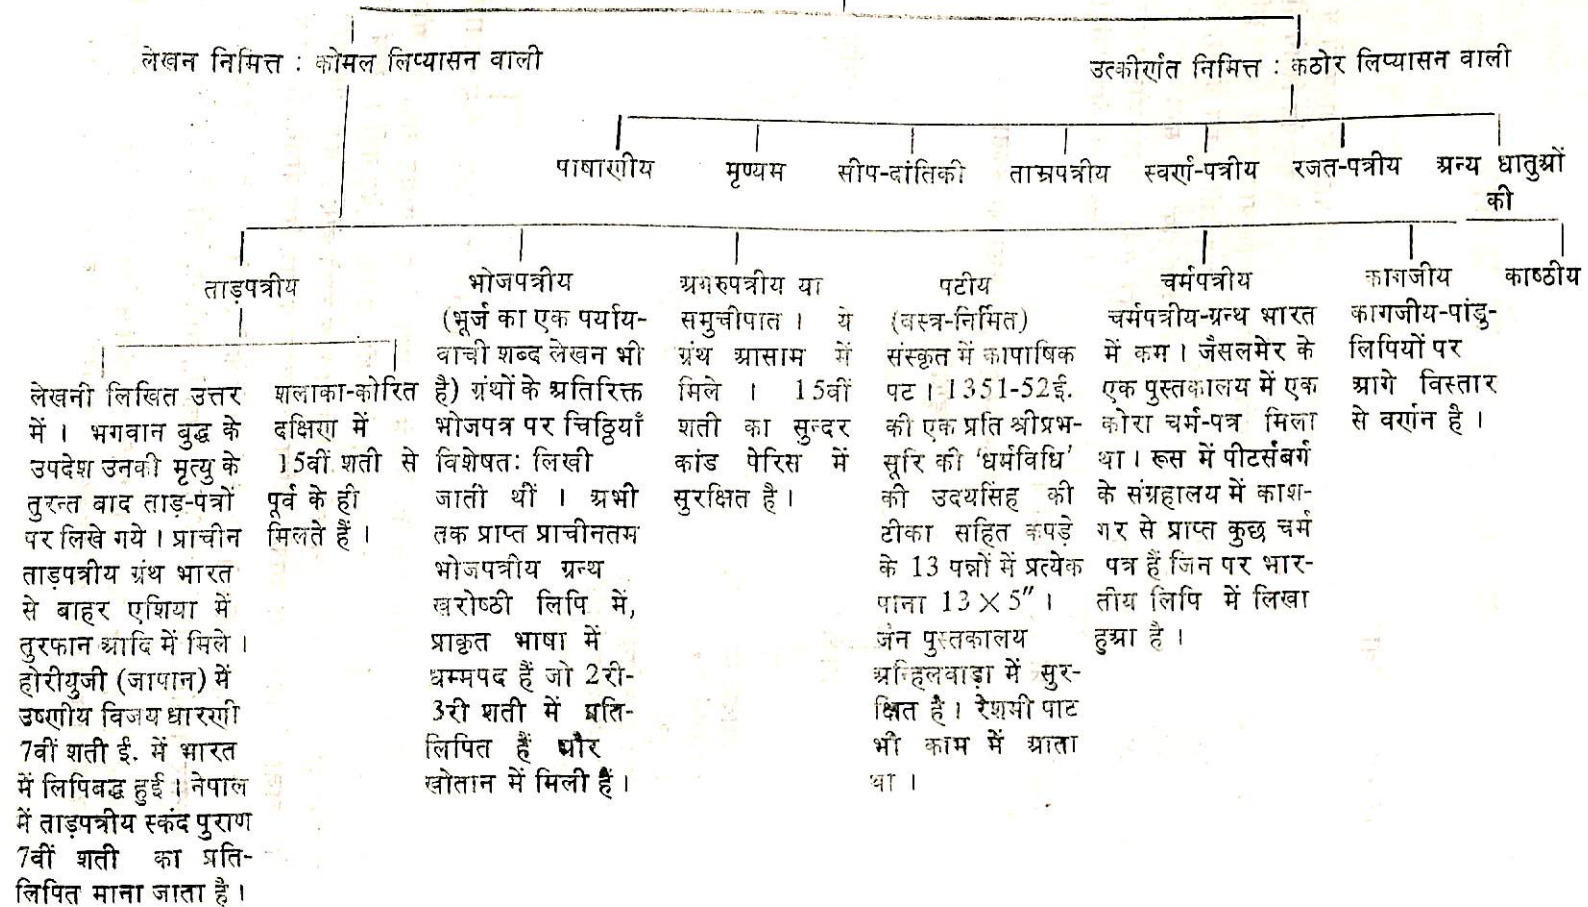 लेखन निमित्त : कोमल लिप्यासन वाली
उत्कीर्णत निमित्त : कठोर लिप्यासन वाली
पाषाणीय
मृण्यम
सीप-दांतिकी
ताम्रपत्रीय
स्वर्ण-पत्रीय
रजत-पत्रीय
अन्य धातुओं
की
ताड़पत्रीय
लेखनी लिखित उत्तर
में । भगवान बुद्ध के
उपदेश उनकी मृत्यु के
तुरन्त बाद ताड़-पत्रों
पर लिखे गये । प्राचीन
ताड़पत्रीय ग्रंथ भारत
से बाहर एशिया में
तुरफान आदि में मिले ।
होरीयुजी (जापान) में
उष्णीय विजय धारणी
7वीं शती ई. में भारत
में लिपिबद्ध हुई । नेपाल
में ताड़पत्रीय स्कंद पुराण
7वीं शती का प्रति-
लिपित माना जाता है ।
शलाका-कोरित
दक्षिण में
15वीं शती से
पूर्व के ही
मिलते हैं ।
भोजपत्रीय
(भूर्ज का एक पर्याय-
वाची शब्द लेखन भी
है) ग्रंथों के अतिरिक्त
भोजपत्र पर चिठ्ठियाँ
विशेषत: लिखी
जाती थीं । अभी
तक प्राप्त प्राचीनतम
भोजपत्रीय ग्रन्थ
खरोष्ठी लिपि में,
प्राकृत भाषा में
धम्मपद हैं जो 2री-
3री शती में प्रति-
लिपित हैं और
खोतान में मिली हैं ।
अगरुपत्रीय या
समुचीपात । ये
ग्रंथ आसाम में
मिले । 15वीं
शती का सुन्दर
कांड पेरिस में
सुरक्षित है ।
पटीय
(वस्त्र-निर्मित)
संस्कृत में कापाषिक
पट । 1351-52ई.
की एक प्रति श्रीप्रभ-
सूरि की ‘धर्मविधि’
की उदयसिंह की
टीका सहित कपड़े
के 13 पन्नों में प्रत्येक
पाना 13 × 5″ ।
जैन पुस्तकालय
अन्हिलवाड़ा में सुर-
क्षित है । रेशमी पाट
भी काम में आता
था ।
चर्मपत्रीय
चर्मपत्रीय-ग्रन्थ भारत
में कम । जैसलमेर के
एक पुस्तकालय में एक
कोरा चर्म-पत्र मिला
था । रूस में पीटर्सबर्ग
के संग्रहालय में काश-
गर से प्राप्त कुछ चर्म
पत्र हैं जिन पर भार-
तीय लिपि में लिखा
हुआ है ।
कागजीय
कागजीय-पांडु-
लिपियों पर
आगे विस्तार
से वर्णन है ।
काष्ठीय